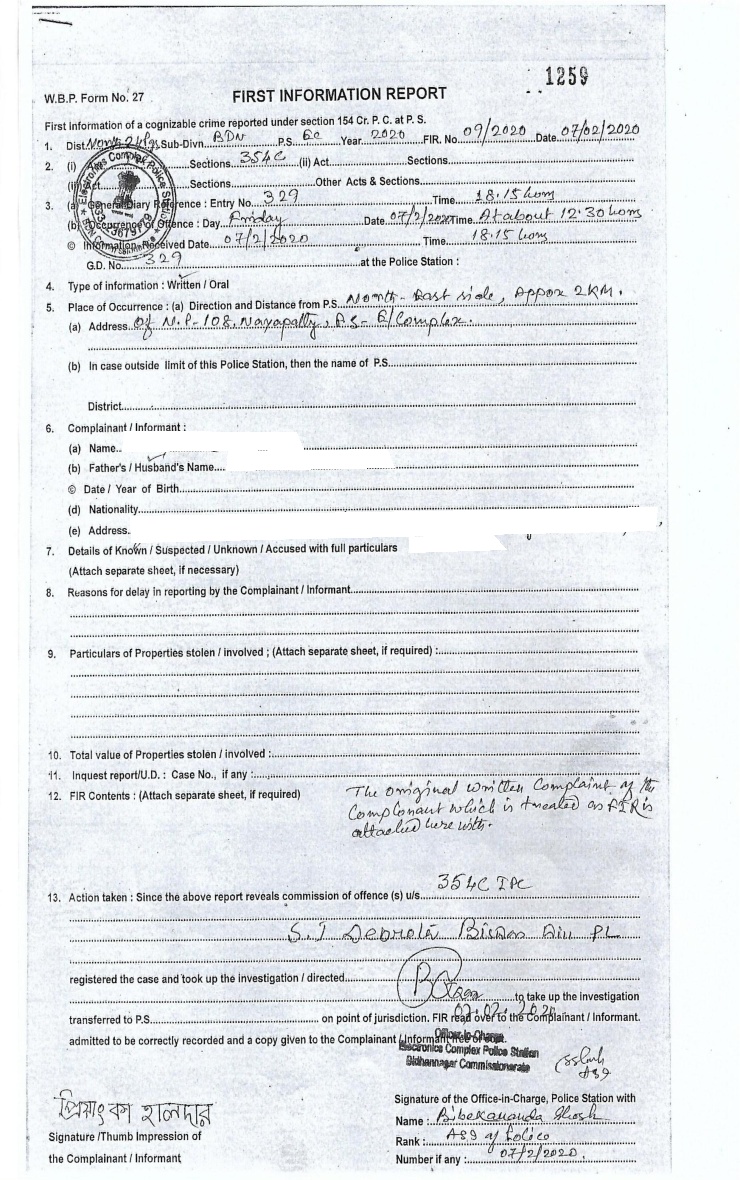 1259
W.B.P. Form No. 27
FIRST INFORMATION REPORT
First information of a cognizable crime reported under section 154 Cr. P. C. at P. S.
1. Dist. North 24 Pgs Sub-Divn. BDN P.S. EC Year 2020 FIR. No 09/2020 Date 07/02/2020
2. (i) Act Sections 354C (ii) Act Sections
(iii) Act Sections Other Acts & Sections
3. (a) General Diary Reference : Entry No. 329 Time 18.15 hrs
(b) Occurrence of Offence : Day Friday Date 07/2/2020 Time At about 12.30 hrs
© Information Received Date 07/2/2020 Time 18.15 hrs
G.D. No. 329 at the Police Station :
4. Type of information : Written / Oral
5. Place of Occurrence : (a) Direction and Distance from P.S. North - East side, Appox 2KM.
(a) Address of N.P-108, Nayapatty, P.S- E/Complex.
(b) In case outside limit of this Police Station, then the name of P.S.
District
6. Complainant / Informant :
(a) Name..
(b) Father's / Husband's Name....
© Date / Year of Birth
(d) Nationality
(e) Address.
7. Details of Known / Suspected / Unknown / Accused with full particulars
(Attach separate sheet, if necessary)
8. Reasons for delay in reporting by the Complainant / Informant
9. Particulars of Properties stolen / involved ; (Attach separate sheet, if required) :
10. Total value of Properties stolen / involved :
11. Inquest report/U.D. : Case No., if any :
12. FIR Contents : (Attach separate sheet, if required) The original written Complaint of the
Complonant which is treated as FIR is
attached here with.
13. Action taken : Since the above report reveals commission of offence (s) u/s. 354C IPC
S.I Debrota Biswas
registered the case and took up the investigation / directed
to take up the investigation
transferred to P.S. on point of jurisdiction. FIR read over to the Complainant / Informant.
07.02.2020
admitted to be correctly recorded and a copy given to the Complainant / Informant free of cost.
Officer-In-Charge
Electronics Complex Police Station
Bidhannagar Commissionerate
প্রিয়াংকা হালদার
Signature /Thumb Impression of
the Complainant / Informant
Signature of the Office-in-Charge, Police Station with
Name : Bibekananda Ghosh
Rank : ASI of Police
Number if any : 07/2/2020.